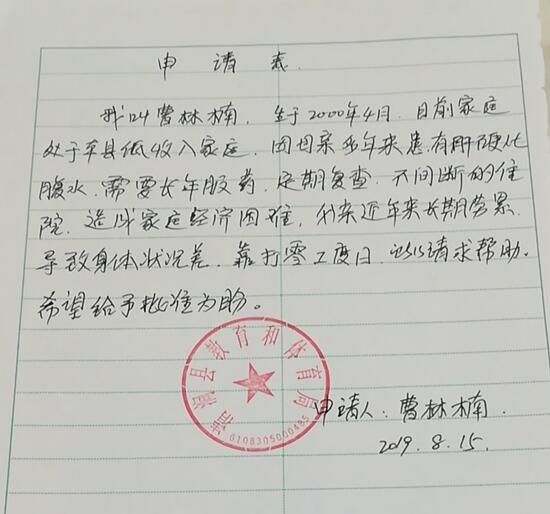 申请表
我叫曹林楠，生于2000年4月，目前家庭
处于本县低收入家庭，因母亲多年来患有肝硬化
腹水，需要长年服药，定期复查，不间断的住
院，造成家庭经济困难，父亲近年来长期劳累，
导致身体状况差，靠打零工度日，以此请求帮助。
希望给予批准为盼。
县教育和体育局
6108305000485
申请人：曹林楠.
2019.8.15.